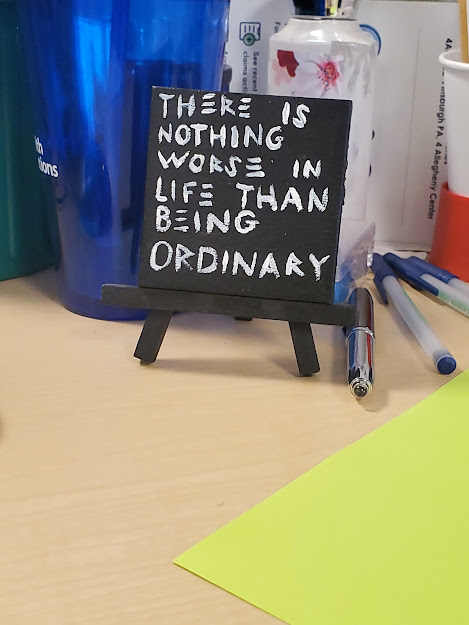 THERE IS
NOTHING
WORSE IN
LIFE THAN
BEING
ORDINARY
See recent
claims acti
4 Allegheny Center